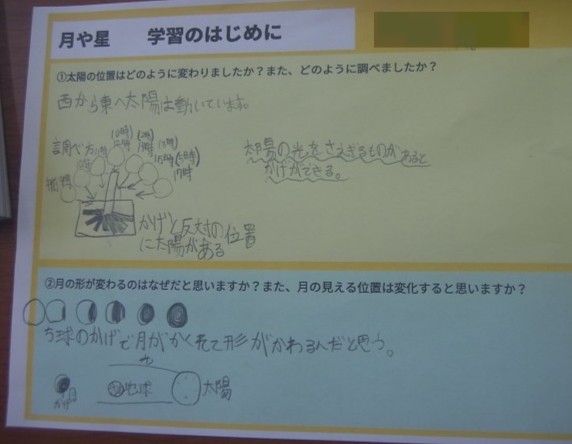 月や星　学習のはじめに
①太陽の位置はどのように変わりましたか？また、どのように調べましたか？
西から東へ太陽は動いています。
調べ方
太陽の光をさえぎるものがあると
かげができる。
かげと反対の位置
に太陽がある
②月の形が変わるのはなぜだと思いますか？また、月の見える位置は変化すると思いますか？
ち球のかげで月がかくれて形がかわるんだと思う。
地球
太陽
かげ